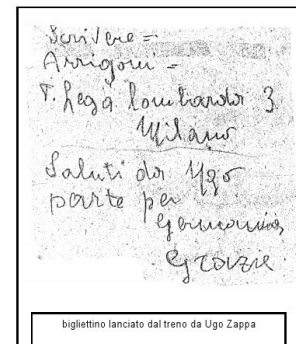 Scrivere =
Arrigoni -
P. Lega lombarda 3
Milano
Saluti da Ugo
parte per
Germania
Grazie
bigliettino lanciato dal treno da Ugo Zappa